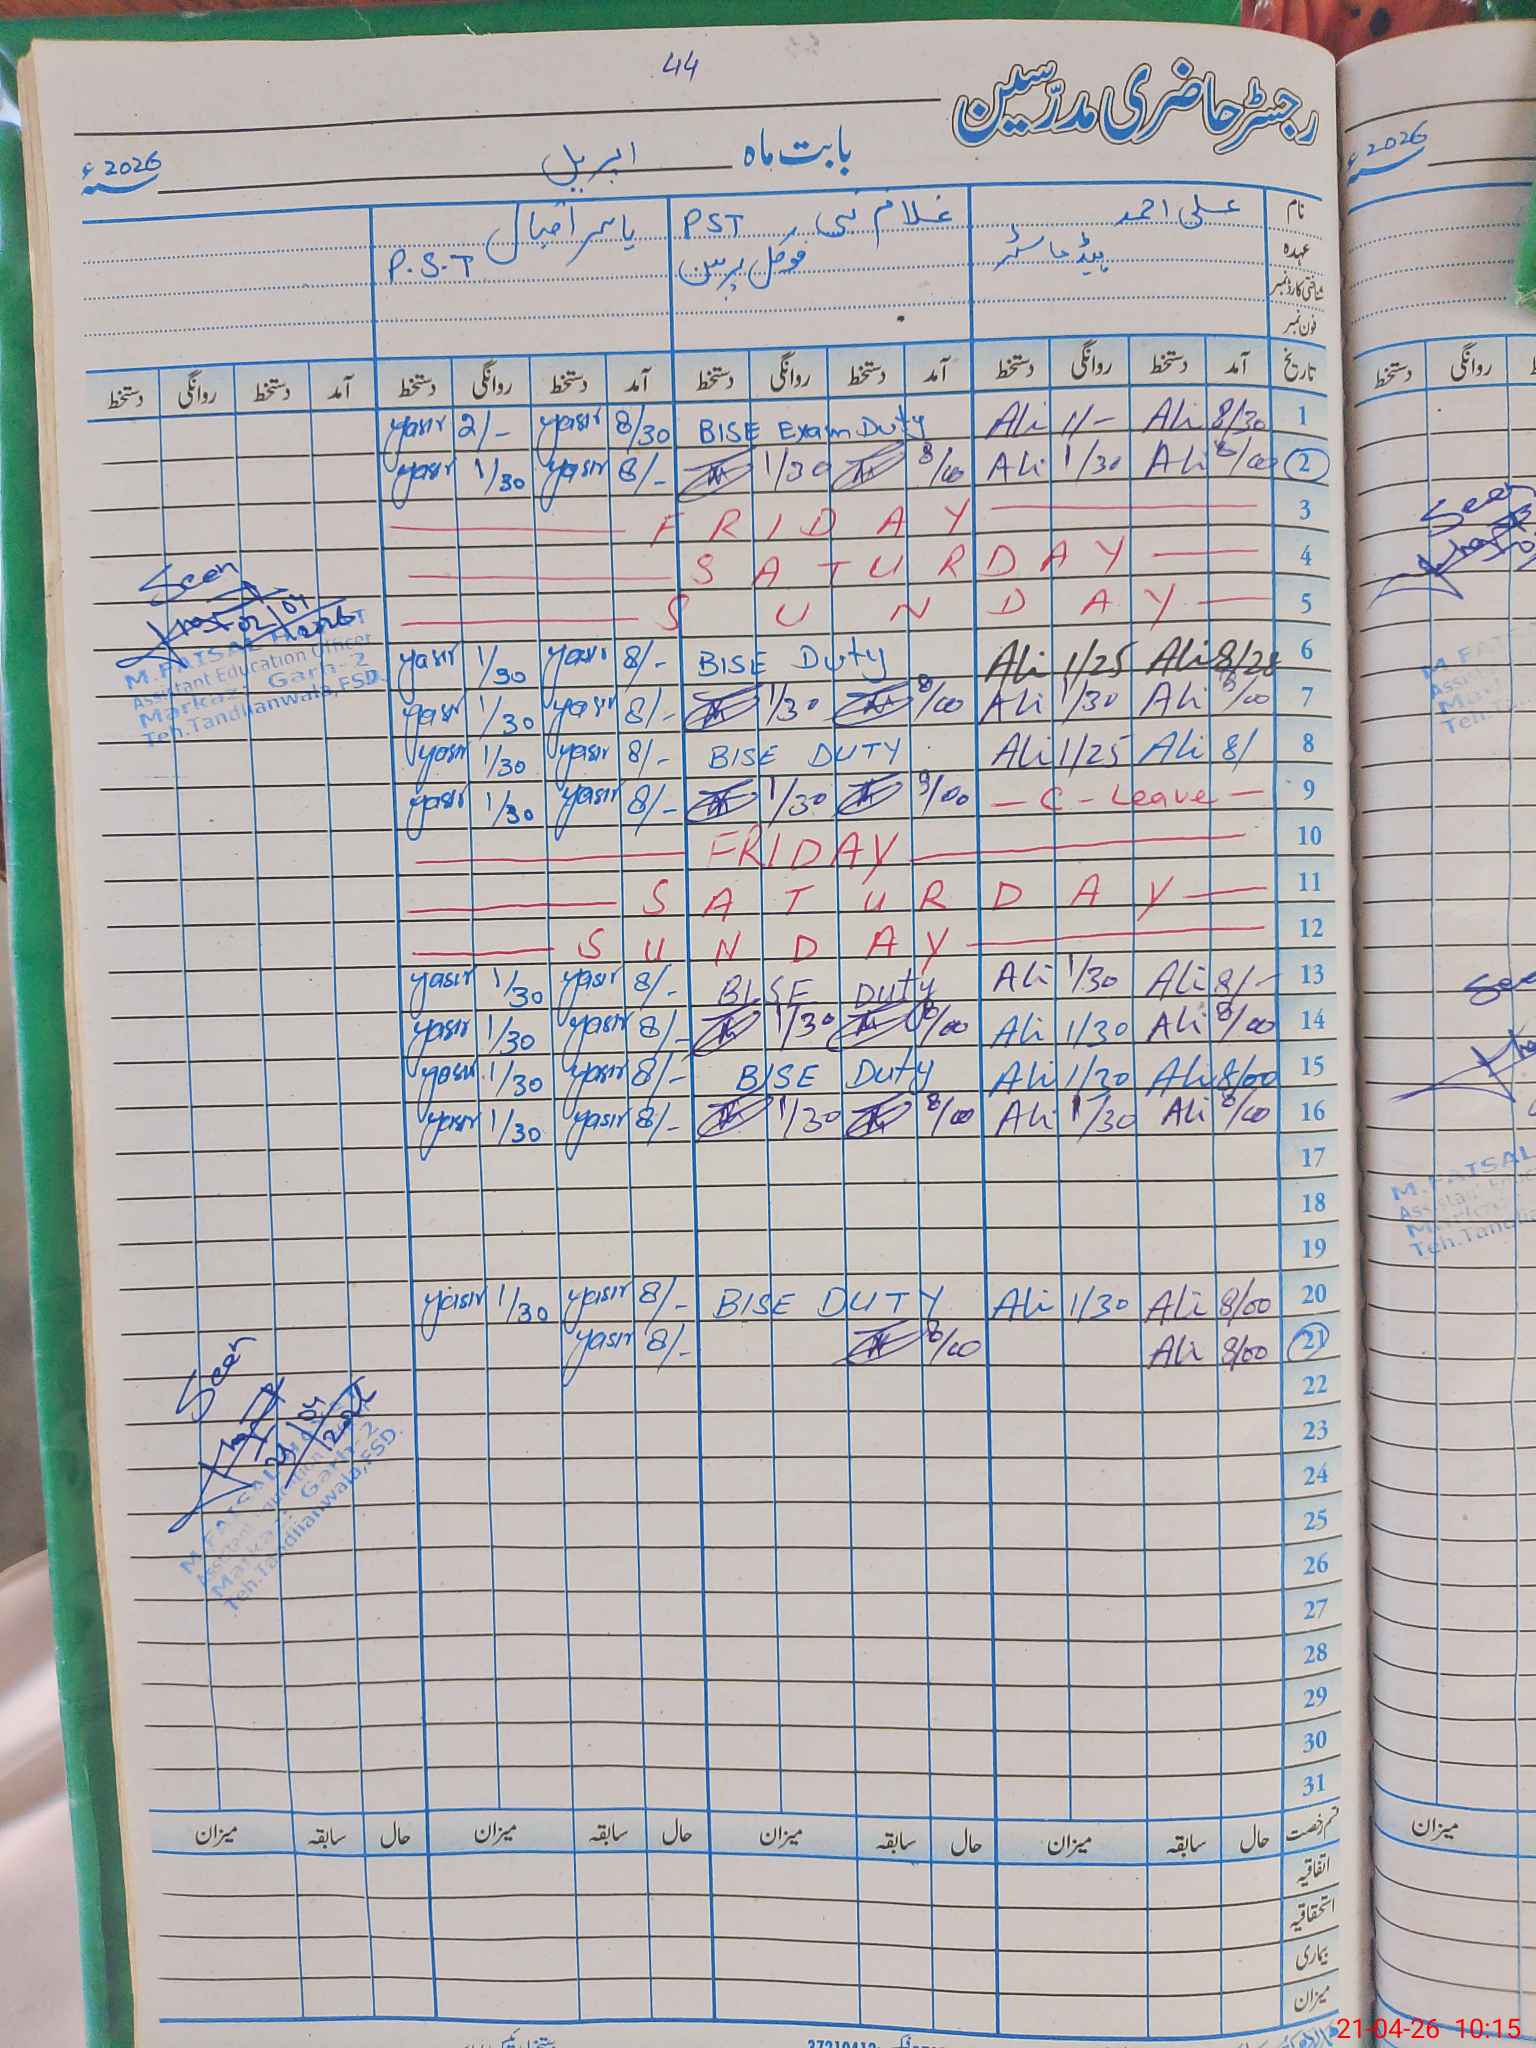 44
رجسٹر حاضری مدرّسین
بابت ماہ اپریل 2026ء
نام علی احمد غلام نبی PST یاسر اقبال
عہدہ ہیڈ ماسٹر فوکل پرسن P.S.T
شناختی کارڈ نمبر
فون نمبر
تاریخ آمد دستخط روانگی دستخط آمد دستخط روانگی دستخط آمد دستخط روانگی دستخط آمد دستخط روانگی دستخط
yasir 2/- yasir 8/30 BISE Exam Duty Ali 1/- Ali 8/30 1
yasir 1/30 yasir 8/- 1/30 8/00 Ali 1/30 Ali 8/00 2
FRIDAY 3
SATURDAY 4
SUNDAY 5
yasir 1/30 yasir 8/- BISE Duty Ali 1/25 Ali 8/28 6
yasir 1/30 yasir 8/- 1/30 8/00 Ali 1/30 Ali 8/00 7
yasir 1/30 yasir 8/- BISE DUTY Ali 1/25 Ali 8/ 8
yasir 1/30 yasir 8/- 1/30 8/00 - C - Leave - 9
FRIDAY 10
SATURDAY 11
SUNDAY 12
yasir 1/30 yasir 8/- BISE Duty Ali 1/30 Ali 8/- 13
yasir 1/30 yasir 8/- 1/30 8/00 Ali 1/30 Ali 8/00 14
yasir 1/30 yasir 8/- BISE Duty Ali 1/30 Ali 8/00 15
yasir 1/30 yasir 8/- 1/30 8/00 Ali 1/30 Ali 8/00 16
17
18
19
yasir 1/30 yasir 8/- BISE DUTY Ali 1/30 Ali 8/00 20
yasir 8/- 8/00 Ali 8/00 21
22
23
24
25
26
27
28
29
30
31
Seen
02/04/2026
M.FAISAL
Assistant Education Officer
Markaz Garh-2
Teh.Tandlianwala,FSD.
Seen
21/04/2026
M.FAISAL
Markaz Garh-2
Teh.Tandlianwala,FSD.
قسم رخصت حال سابقہ میزان حال سابقہ میزان حال سابقہ میزان حال سابقہ میزان
اتفاقیہ
استحقاقیہ
بیماری
میزان
2026ء
دستخط روانگی
Seen
M.FAIS
Teh.T
See
M.FAISAL
Teh.Tandlia
میزان
21-04-26 10:15